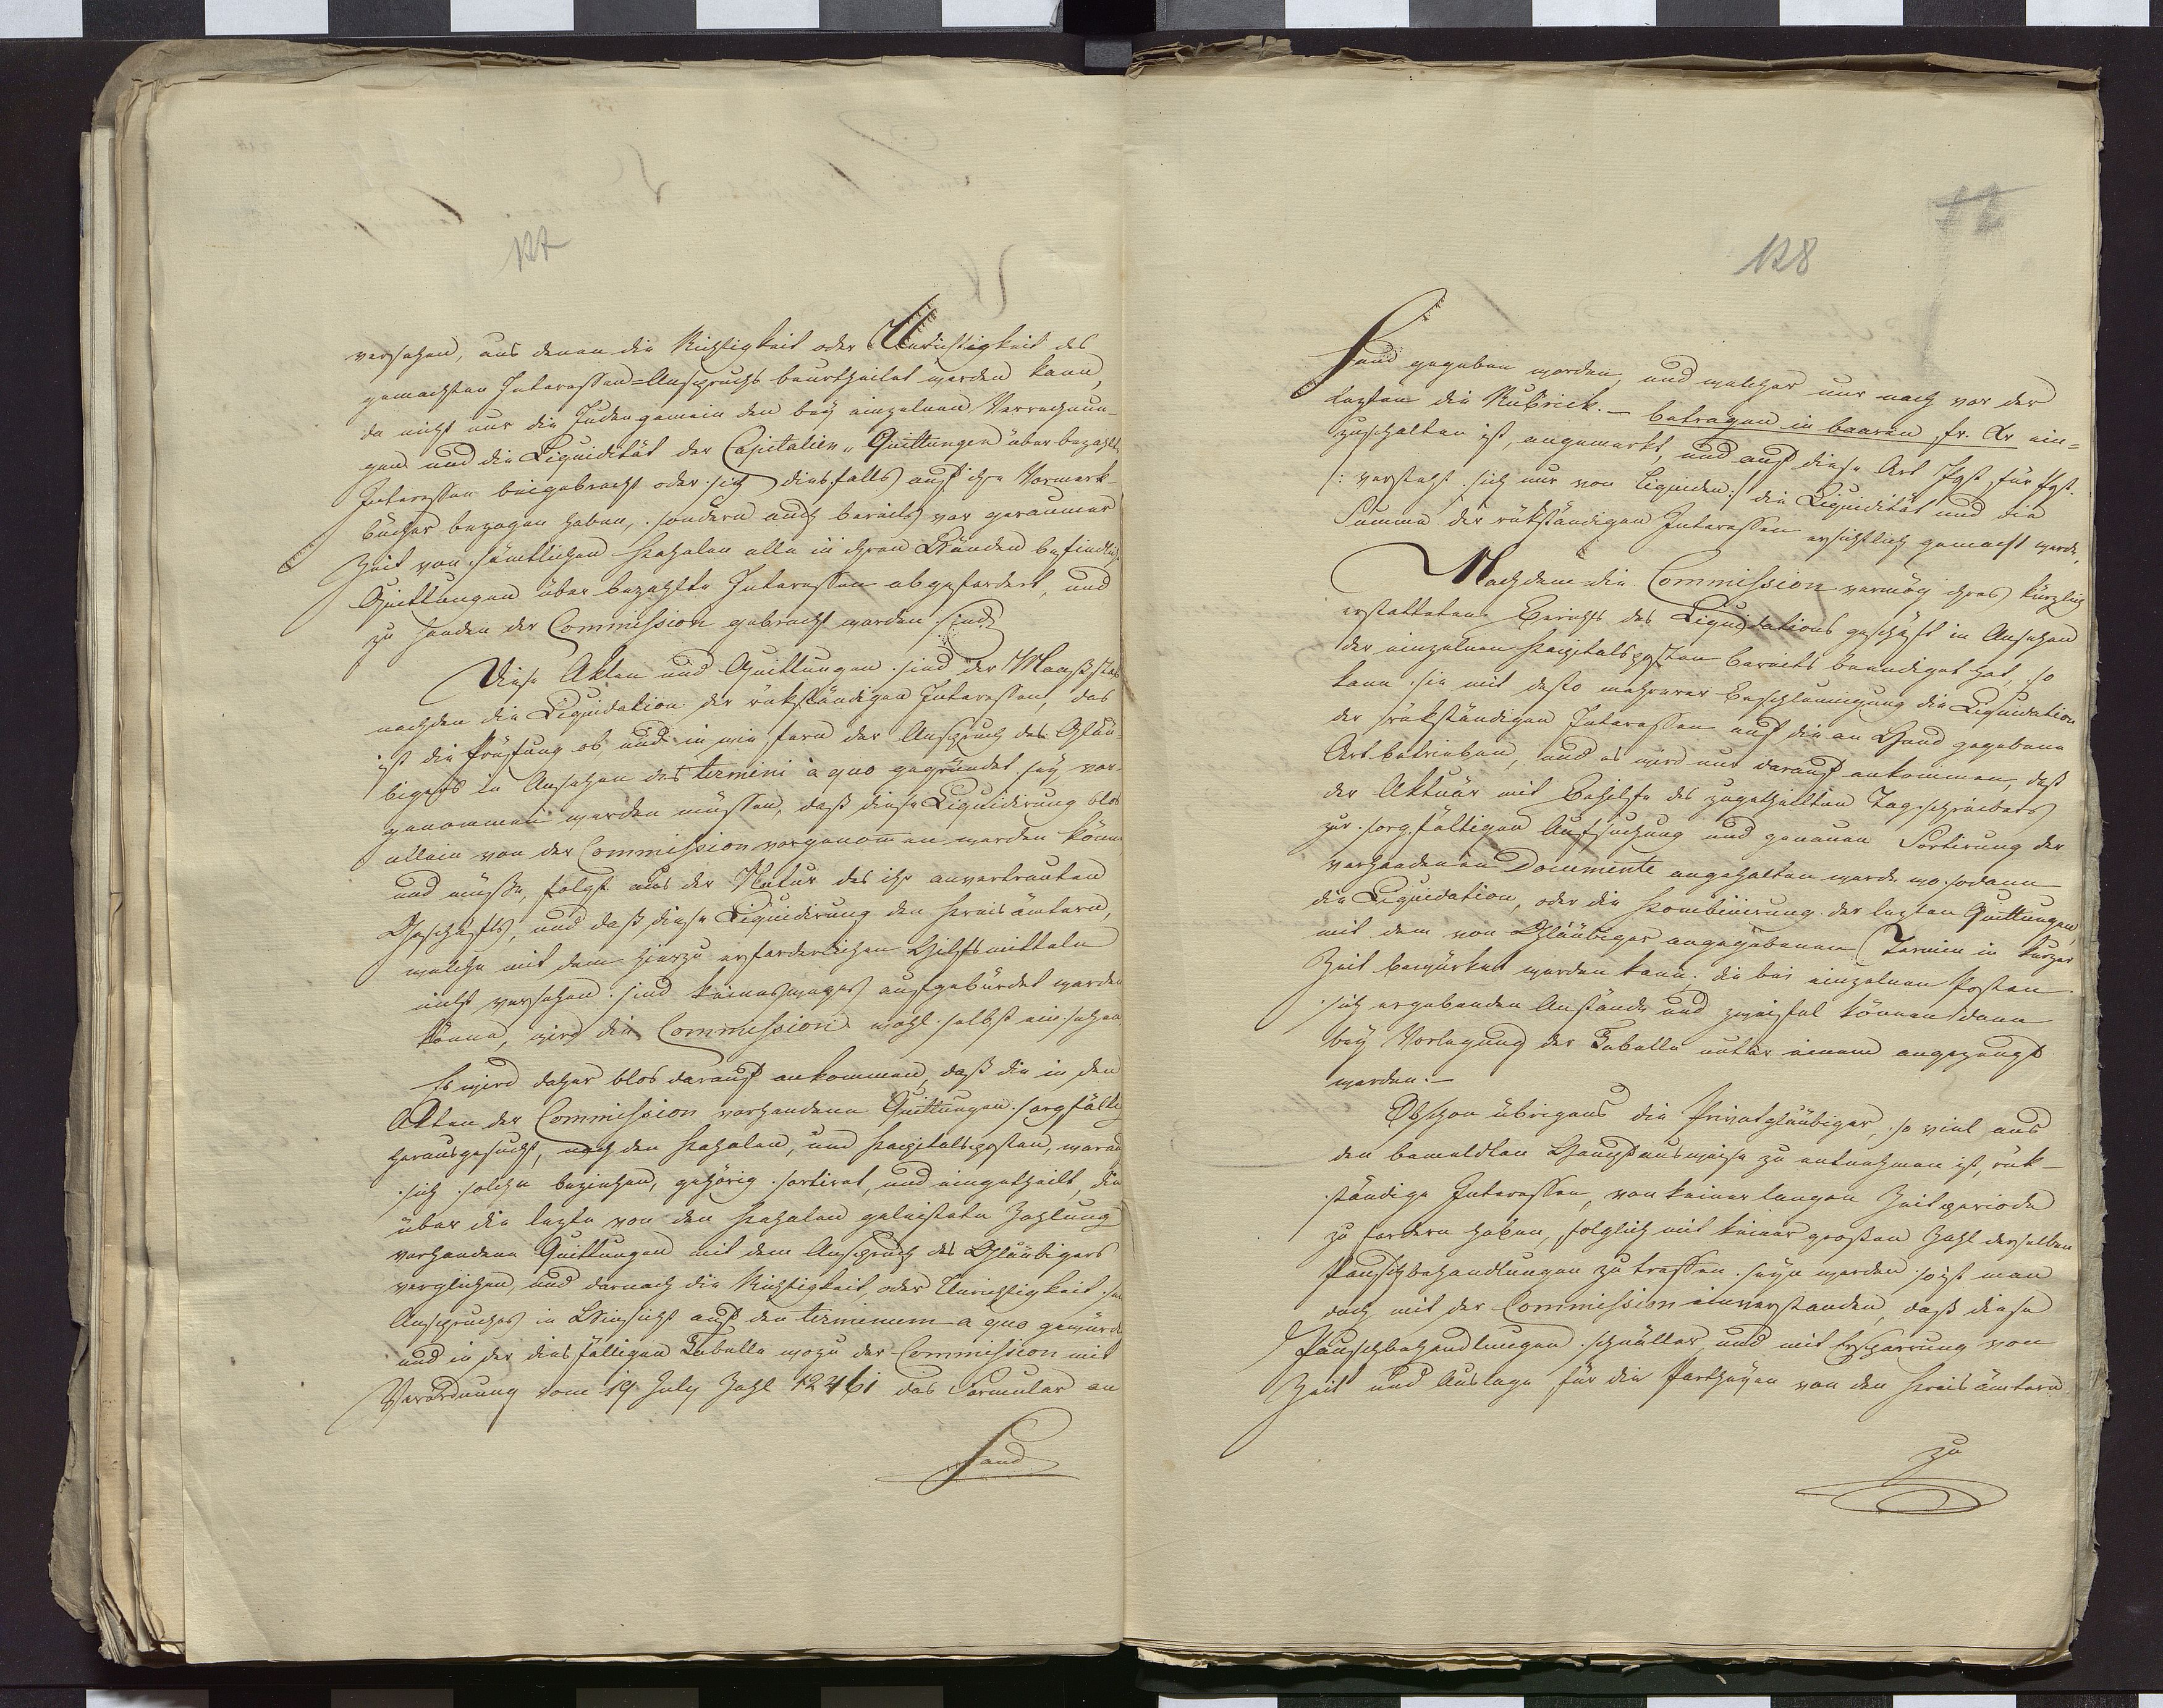 127
versehen, aus denen die Richtigkeit oder Unrichtigkeit des
gemachten Interessen-Anspruchs beurtheilet werden kann,
da nicht nur die Judengemeinden bey einzelnen Verrechnun-
gen und die Liquidität der Capitalien, Quittungen über bezahlte
Interessen beigebracht oder sich diesfalls auf ihre Vormerk-
bücher bezogen haben, sondern auch bereits vor geraumer
Zeit von sämtlichen Kahalen alle in ihren Händen befindliche
Quittungen über bezahlte Interessen abgefordert, und
zu Handen der Commission gebracht worden sind.
Diese Akten und Quittungen sind der Maaßstab
nach den die Liquidation der rükständigen Interessen, das
ist die Prüfung ob und in wie fern der Anspruch des Gläu-
bigers in Ansehen des termini a quo gegründet sey vor-
genommen werden müssen, daß diese Liquidirung blos
allein von der Commission vorgenommen werden könne
und müsse, folgt aus der Natur des ihr anvertrauten
Geschäfts, und daß diese Liquidirung den Kreisämtern,
welche mit dem hierzu erforderlichen Hilfsmitteln
nicht versehen sind keineswegs aufgebürdet werden
könne, wird die Commission wohl selbst einsehen.
Es wird daher blos darauf ankommen, daß die in den
Akten der Commission vorhandene Quittungen sorgfältig
herausgesucht, nach den Kahalen, und Kapitalsposten, worauf
sich solche beziehen, gehörig sortiret, und eingetheilt, die
über die lezte von den Kahalen geleistete Zahlung
vorhandene Quittungen mit dem Anspruch des Gläubigers
verglichen, und darnach die Richtigkeit, oder Unrichtigkeit
Anspruches in Hinsicht auf den terminum a quo gewürd
und in der diesfälligen Tabelle wozu der Commission mit
Verordnung vom 19 July Zahl 12461 das Formular an
Hand
128
Hand gegeben worden, und welcher nur noch vor der
lezten die Rubrick. — betragen in baaren fr. Xr ein=
zuschalten ist, angemerkt, und auf diese Art Post für Post.
/: versteht sich nur von liquiden :/ die Liquidität und die
Summe der rükständigen Interessen ersichtlich gemacht werde,
Nachdem die Commission vermög ihres kürzlich
erstatteten Berichts das Liquidations geschäft in Ansehen
der einzelnen Kapitalsposten bereits beendiget hat, so
kann sie mit desto mehrerer Beschleunigung die Liquidation
der rükständigen Interessen auf die an Hand gegebene
Art betreiben, und es wird nur darauf ankommen, daß
der Aktuär mit Behilfe des zugetheilten Tagschreibers
zur sorgfältigen Aufsuchung und genauen Sortirung der
vorhandenen Documente angehalten werde wo sodann
die Liquidation, oder die Kombinirung der lezten Quittungen
mit dem von Gläubiger angegebenen Termin in kurzer
Zeit bewürket werden kann; die bei einzelnen Posten
sich ergebenden Anstände und zweifel können dann
bey Vorlegung der Tabelle unter einem angezeugt
werden.—
Obschon übrigens die Privatgläubiger, so viel aus
den bemeldten Hauptausweise zu entnehmen ist, rük-
ständige Interessen, von keiner langen Zeitperiode
zu fordern haben, folglich mit keiner großen Zahl derselben
Pauschbehandlungen zu treffen seyn werden so ist man
doch mit der Commission einverstanden, daß diese
Pauschbehandlungen schneller und mit Ersparrung von
Zeit und Auslage für die Partheyen von den Kreisämtern
zu